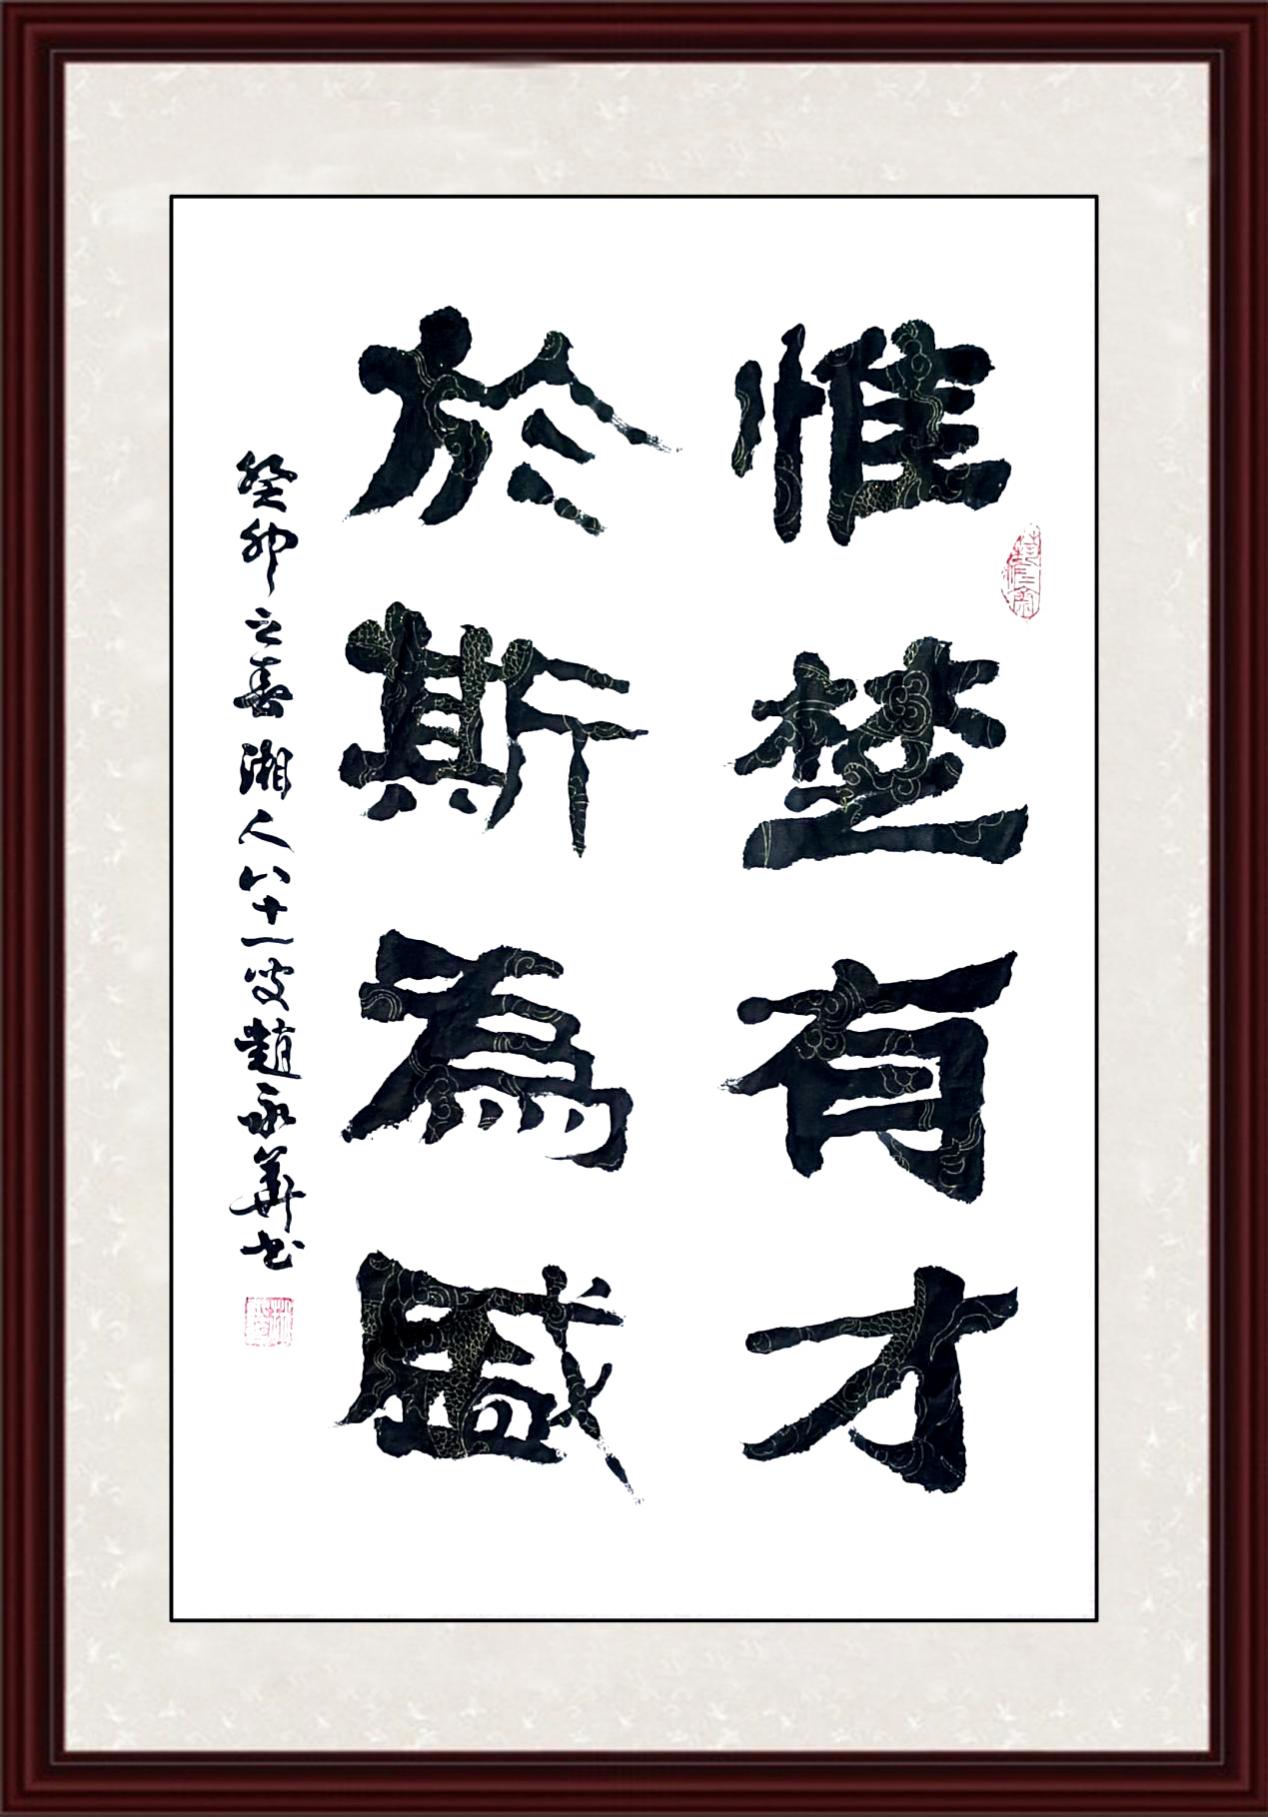 惟楚有才
於斯為盛
癸卯之春湘人八十一叟趙永華书